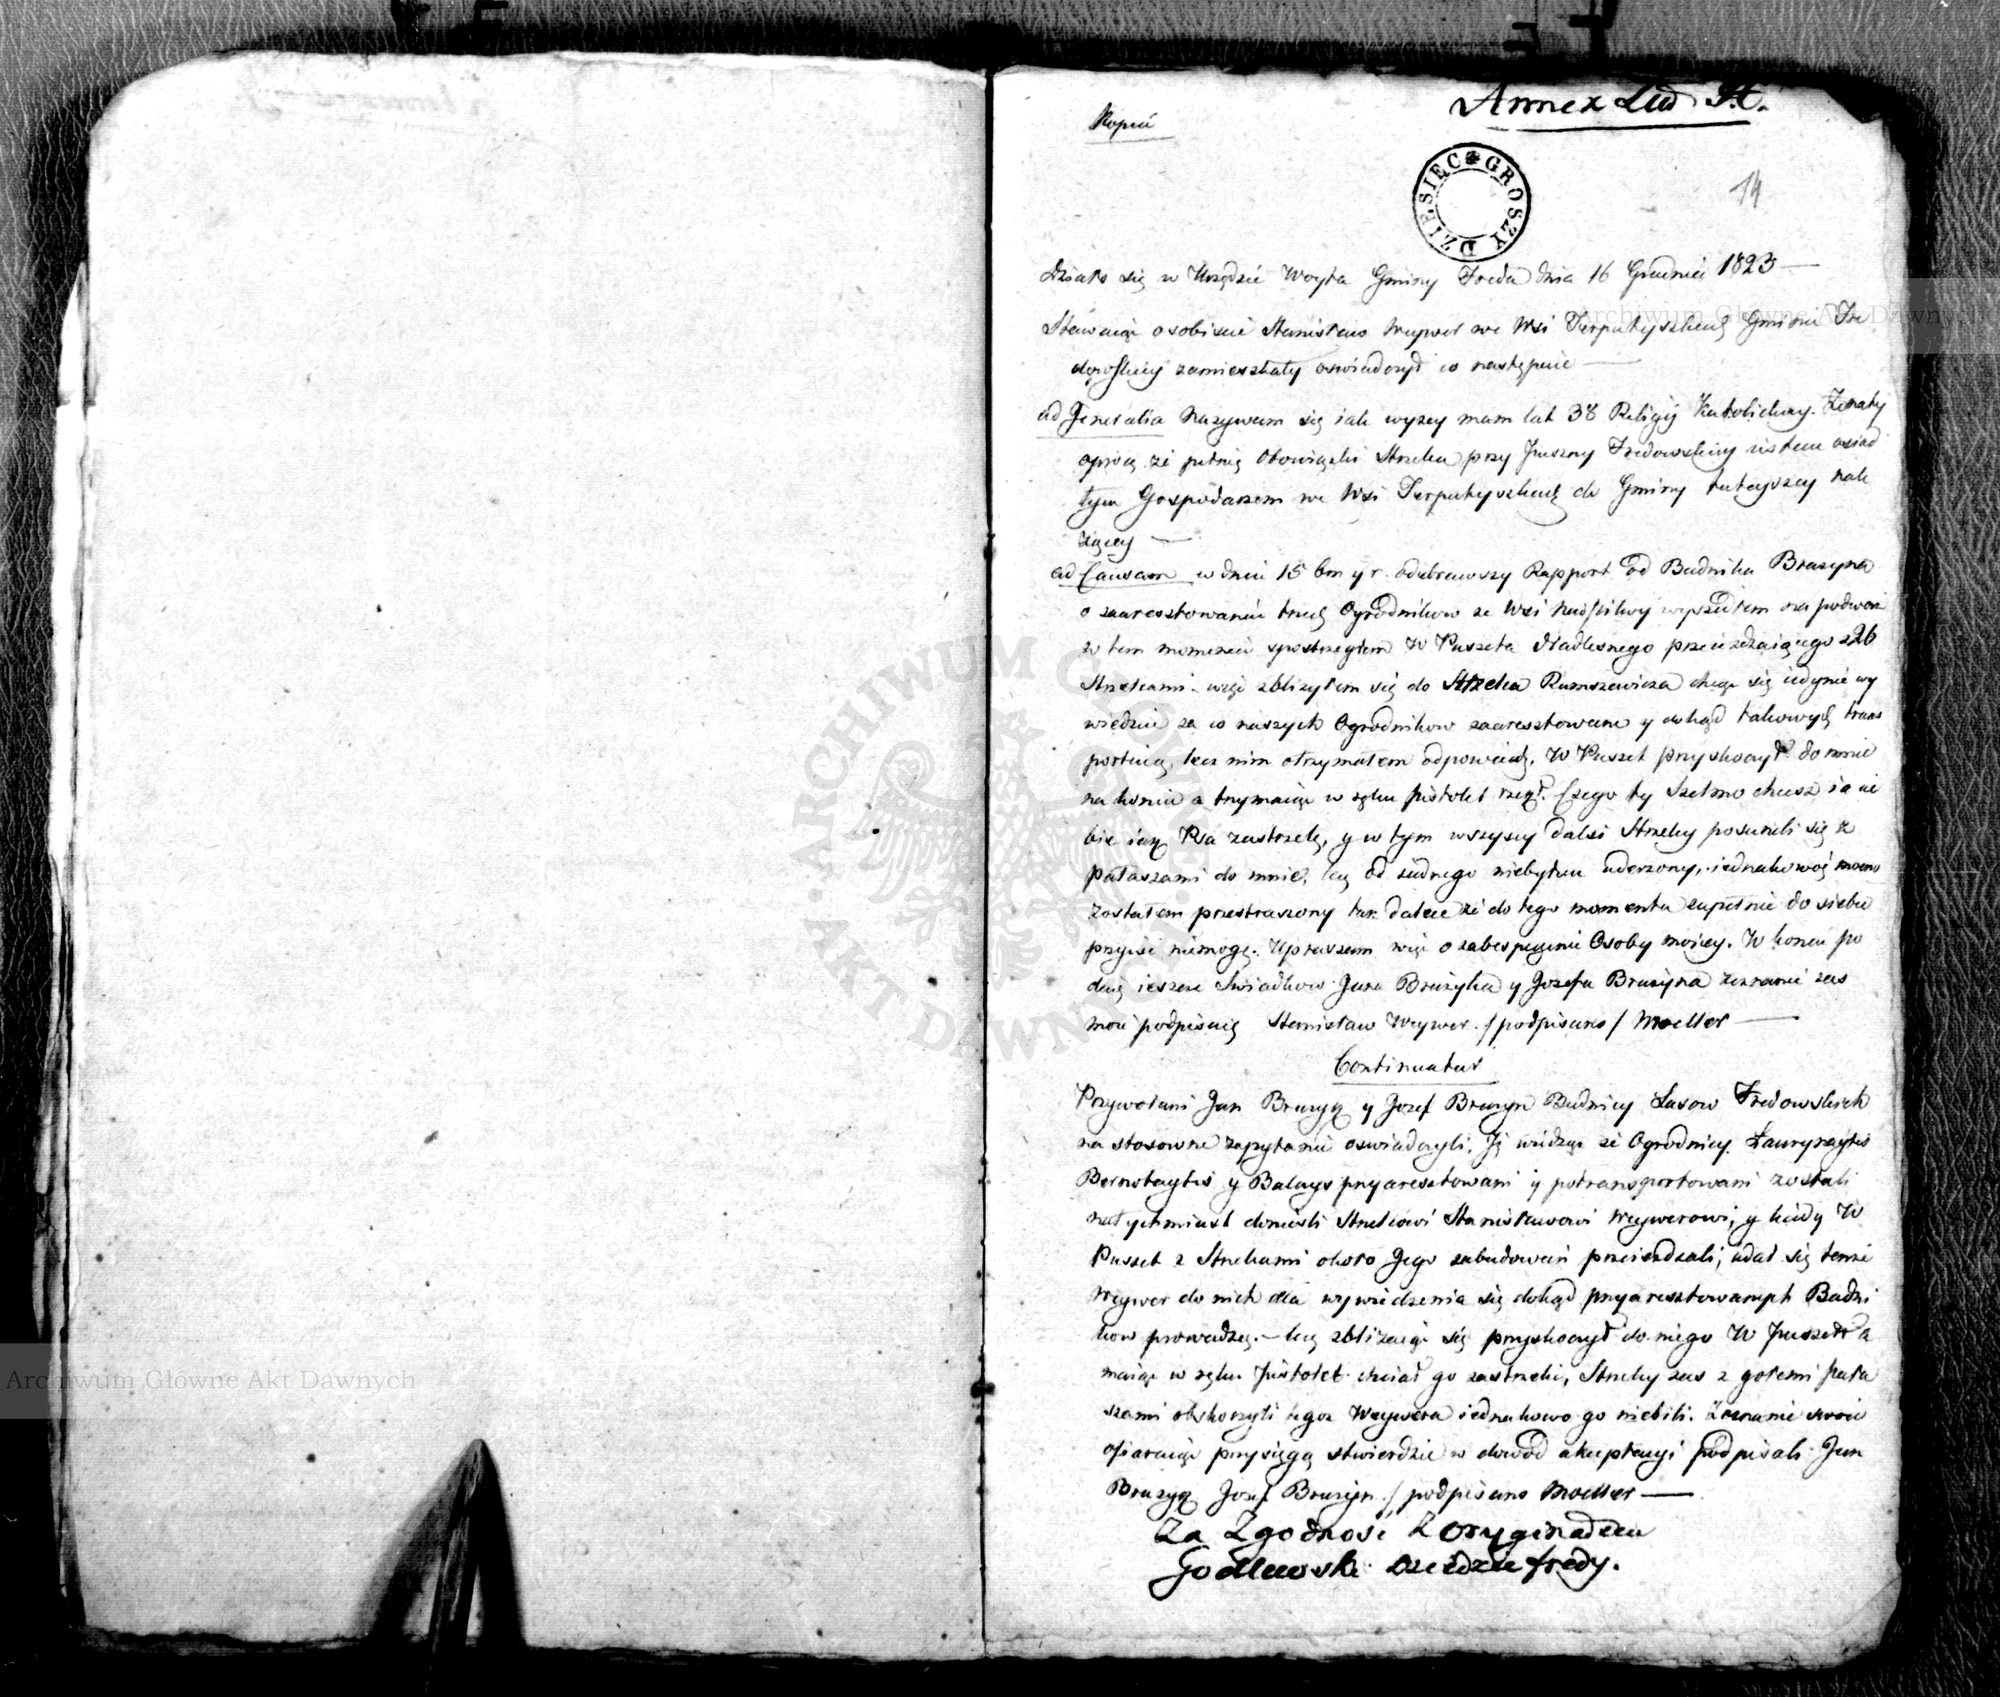 Annex Lit A.
Kopia
DZIESIĘC GROSZY
14
Działo się w Urzędzie Woyta Gminy Freda dnia 16 Grudnia 1823
Stawaiąc osobiscie Stanisław Weywer we Wsi Gminie Fre
dowskiey zamieszkały oswiadczył co następuie
ad Generalia Nazywam się iak wyzey mam lat 38 Religij Katolickiey. Zonaty
oprocz że pełnię Obowiązki Strzelca przy Puszczy Fredowskiey iestem osiad
łym Gospodarzem we Wsi do Gminy tuteyszey nale
żącey
ad Causam w dniu 15 bm y r. odebrawszy Rapport od Budnika Bruzyna
o zaaresztowaniu trzech Ogrodnikow ze Wsi wyszedłem
w tem momencie spostrzegłem W Puszeta Nadlesnego przeiezdzaiącego z
Strzelcami więc zblizyłem się do Strzelca Rumszewicza chcąc się iedynie wy
wiedzieć za co naszych Ogrodnikow zaaresztowano y dokąd takowych trans
portuią, lecz nim otrzymałem odpowiedz, W Puszet przyskoczył do mnie
na koniu a trzymaiąc w ręku pistolet rzekł. Czego ty Szelmo chcesz ia cie
bie iak Psa zastrzelę, y w tym wszyscy dalsi Strzelcy posuneli się z
pałaszami do mnie, lecz od żadnego niebyłem uderzony, iednakowoż mocno
zostałem przestraszony tak dalece że do tego momentu zupełnie do siebie
przyiść niemogę. Upraszam więc o zabespieczenie Osoby moiey. W koncu po
daię ieszcze Swiadkow Jana Bruzyka y Jozefa Bruzyna Zeznanie zas
moie podpisuię Stanisław Weywer. / podpisano / Moeller
Continuatur
Przywołani Jan Bruzyk y Jozef Bruzyn Budnicy Lasow Fredowskich
na stosowne zapytanie oswiadczyli, Iż widząc że Ogrodnicy Laurynaytis
Bernotaytis y Balczys przyaresztowani y potransportowani zostali
natychmiast doniesli Strzelcowi Stanisławowi Weywerowi, y kiedy W
Puszet z Strzelcami około Jego zabudowań przeiezdzali, udał się tenze
Weywer do nich dla wywiedzenia się dokąd przyaresztowanych Budni
kow prowadzą. — lecz zblizaiąc się przyskoczył do niego W Puszett a
maiąc w ręku Pistolet chciał go zastrzelic, Strzelcy zas z gołemi pała
szami obskoczyli tegoz Weywera iednakowo go niebili. Zeznanie swoie
ofiaruiąc przysięgą stwierdzic w dowod akceptacyi podpisali Jan
Bruzyk Jozef Bruzyn. / podpisano Moeller
Za Zgodność z oryginałem
Godlewski Dziedzic Fredy.